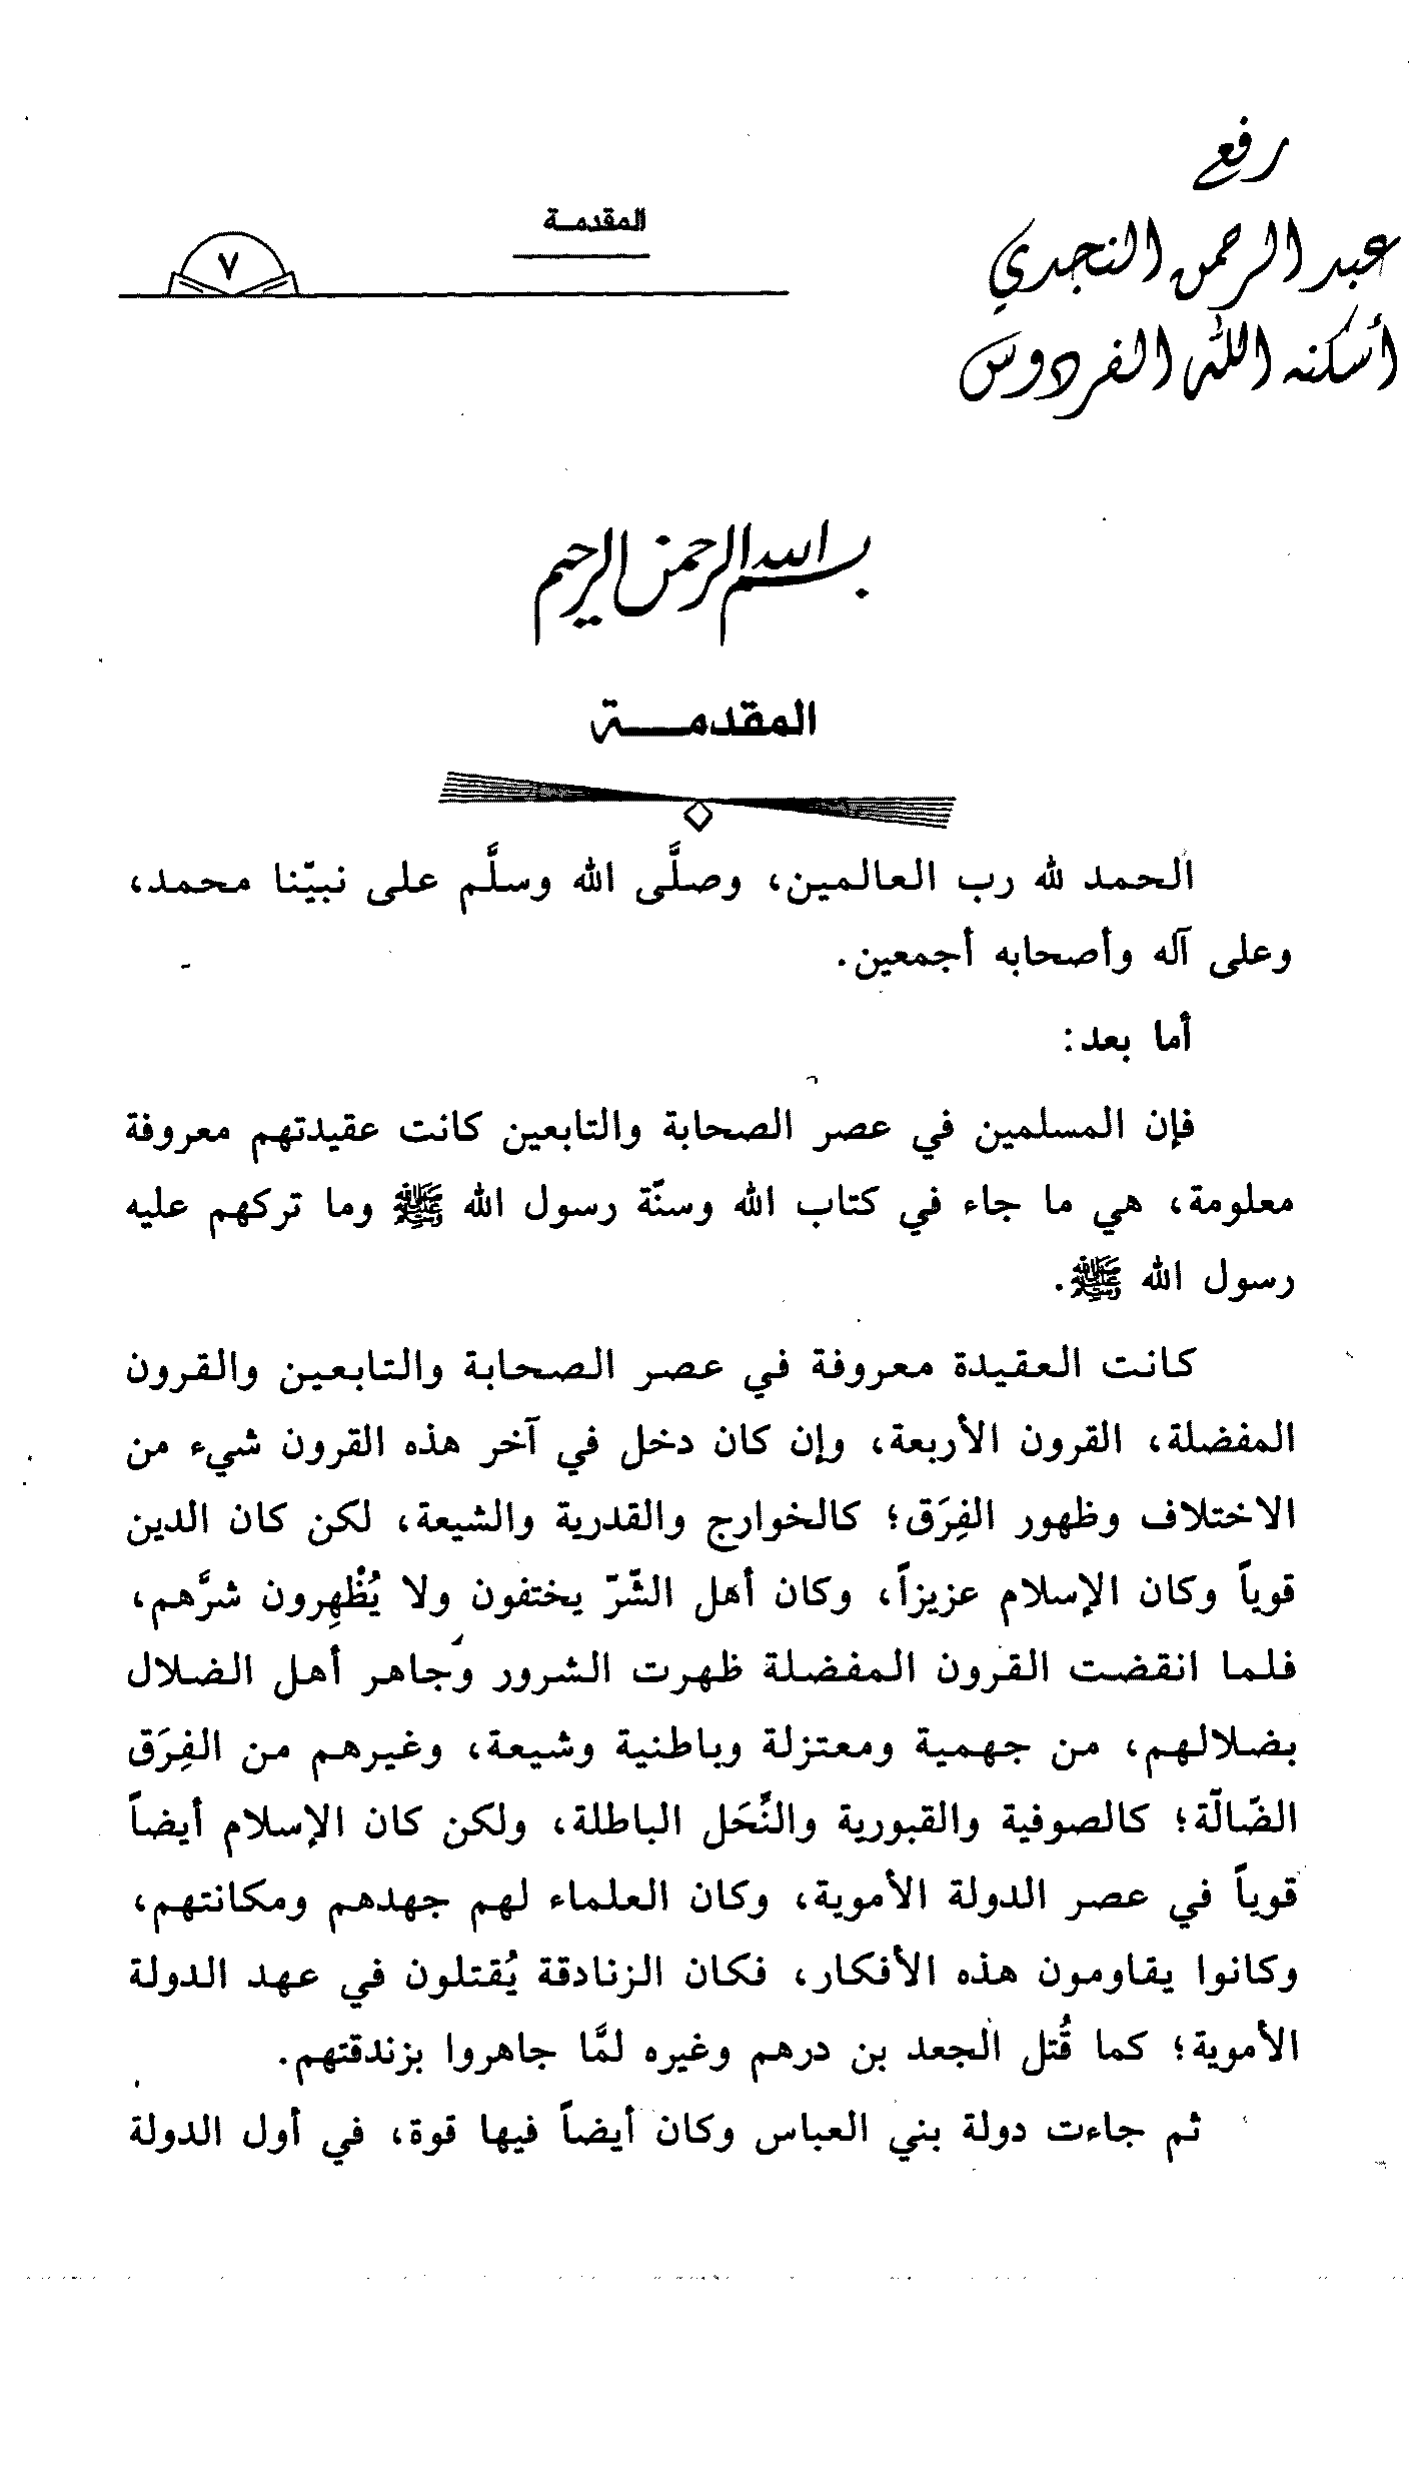 رفع
عبد الرحمن النجدي
أسكنه الله الفردوس
المقدمة
٧
بسم الله الرحمن الرحيم
المقدمة
الحمد لله رب العالمين، وصلَّى الله وسلَّم على نبيّنا محمد،
وعلى آله وأصحابه أجمعين.
أما بعد:
فإن المسلمين في عصر الصحابة والتابعين كانت عقيدتهم معروفة
معلومة، هي ما جاء في كتاب الله وسنّة رسول الله ﷺ وما تركهم عليه
رسول الله ﷺ.
كانت العقيدة معروفة في عصر الصحابة والتابعين والقرون
المفضلة، القرون الأربعة، وإن كان دخل في آخر هذه القرون شيء من
الاختلاف وظهور الفِرَق؛ كالخوارج والقدرية والشيعة، لكن كان الدين
قوياً وكان الإسلام عزيزاً، وكان أهل الشّرّ يختفون ولا يُظْهِرون شرَّهم،
فلما انقضت القرون المفضلة ظهرت الشرور وجاهر أهل الضلال
بضلالهم، من جهمية ومعتزلة وباطنية وشيعة، وغيرهم من الفِرَق
الضّالّة؛ كالصوفية والقبورية والنَّحَل الباطلة، ولكن كان الإسلام أيضاً
قوياً في عصر الدولة الأموية، وكان العلماء لهم جهدهم ومكانتهم،
وكانوا يقاومون هذه الأفكار، فكان الزنادقة يُقتلون في عهد الدولة
الأموية؛ كما قُتل الجعد بن درهم وغيره لمَّا جاهروا بزندقتهم.
ثم جاءت دولة بني العباس وكان أيضاً فيها قوة، في أول الدولة